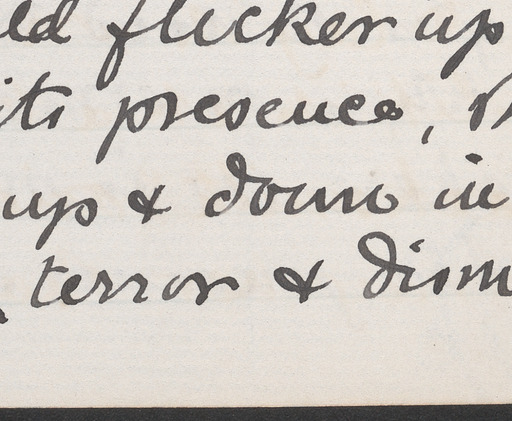 ld flicker up
its presence,
up & down in
terror & dism